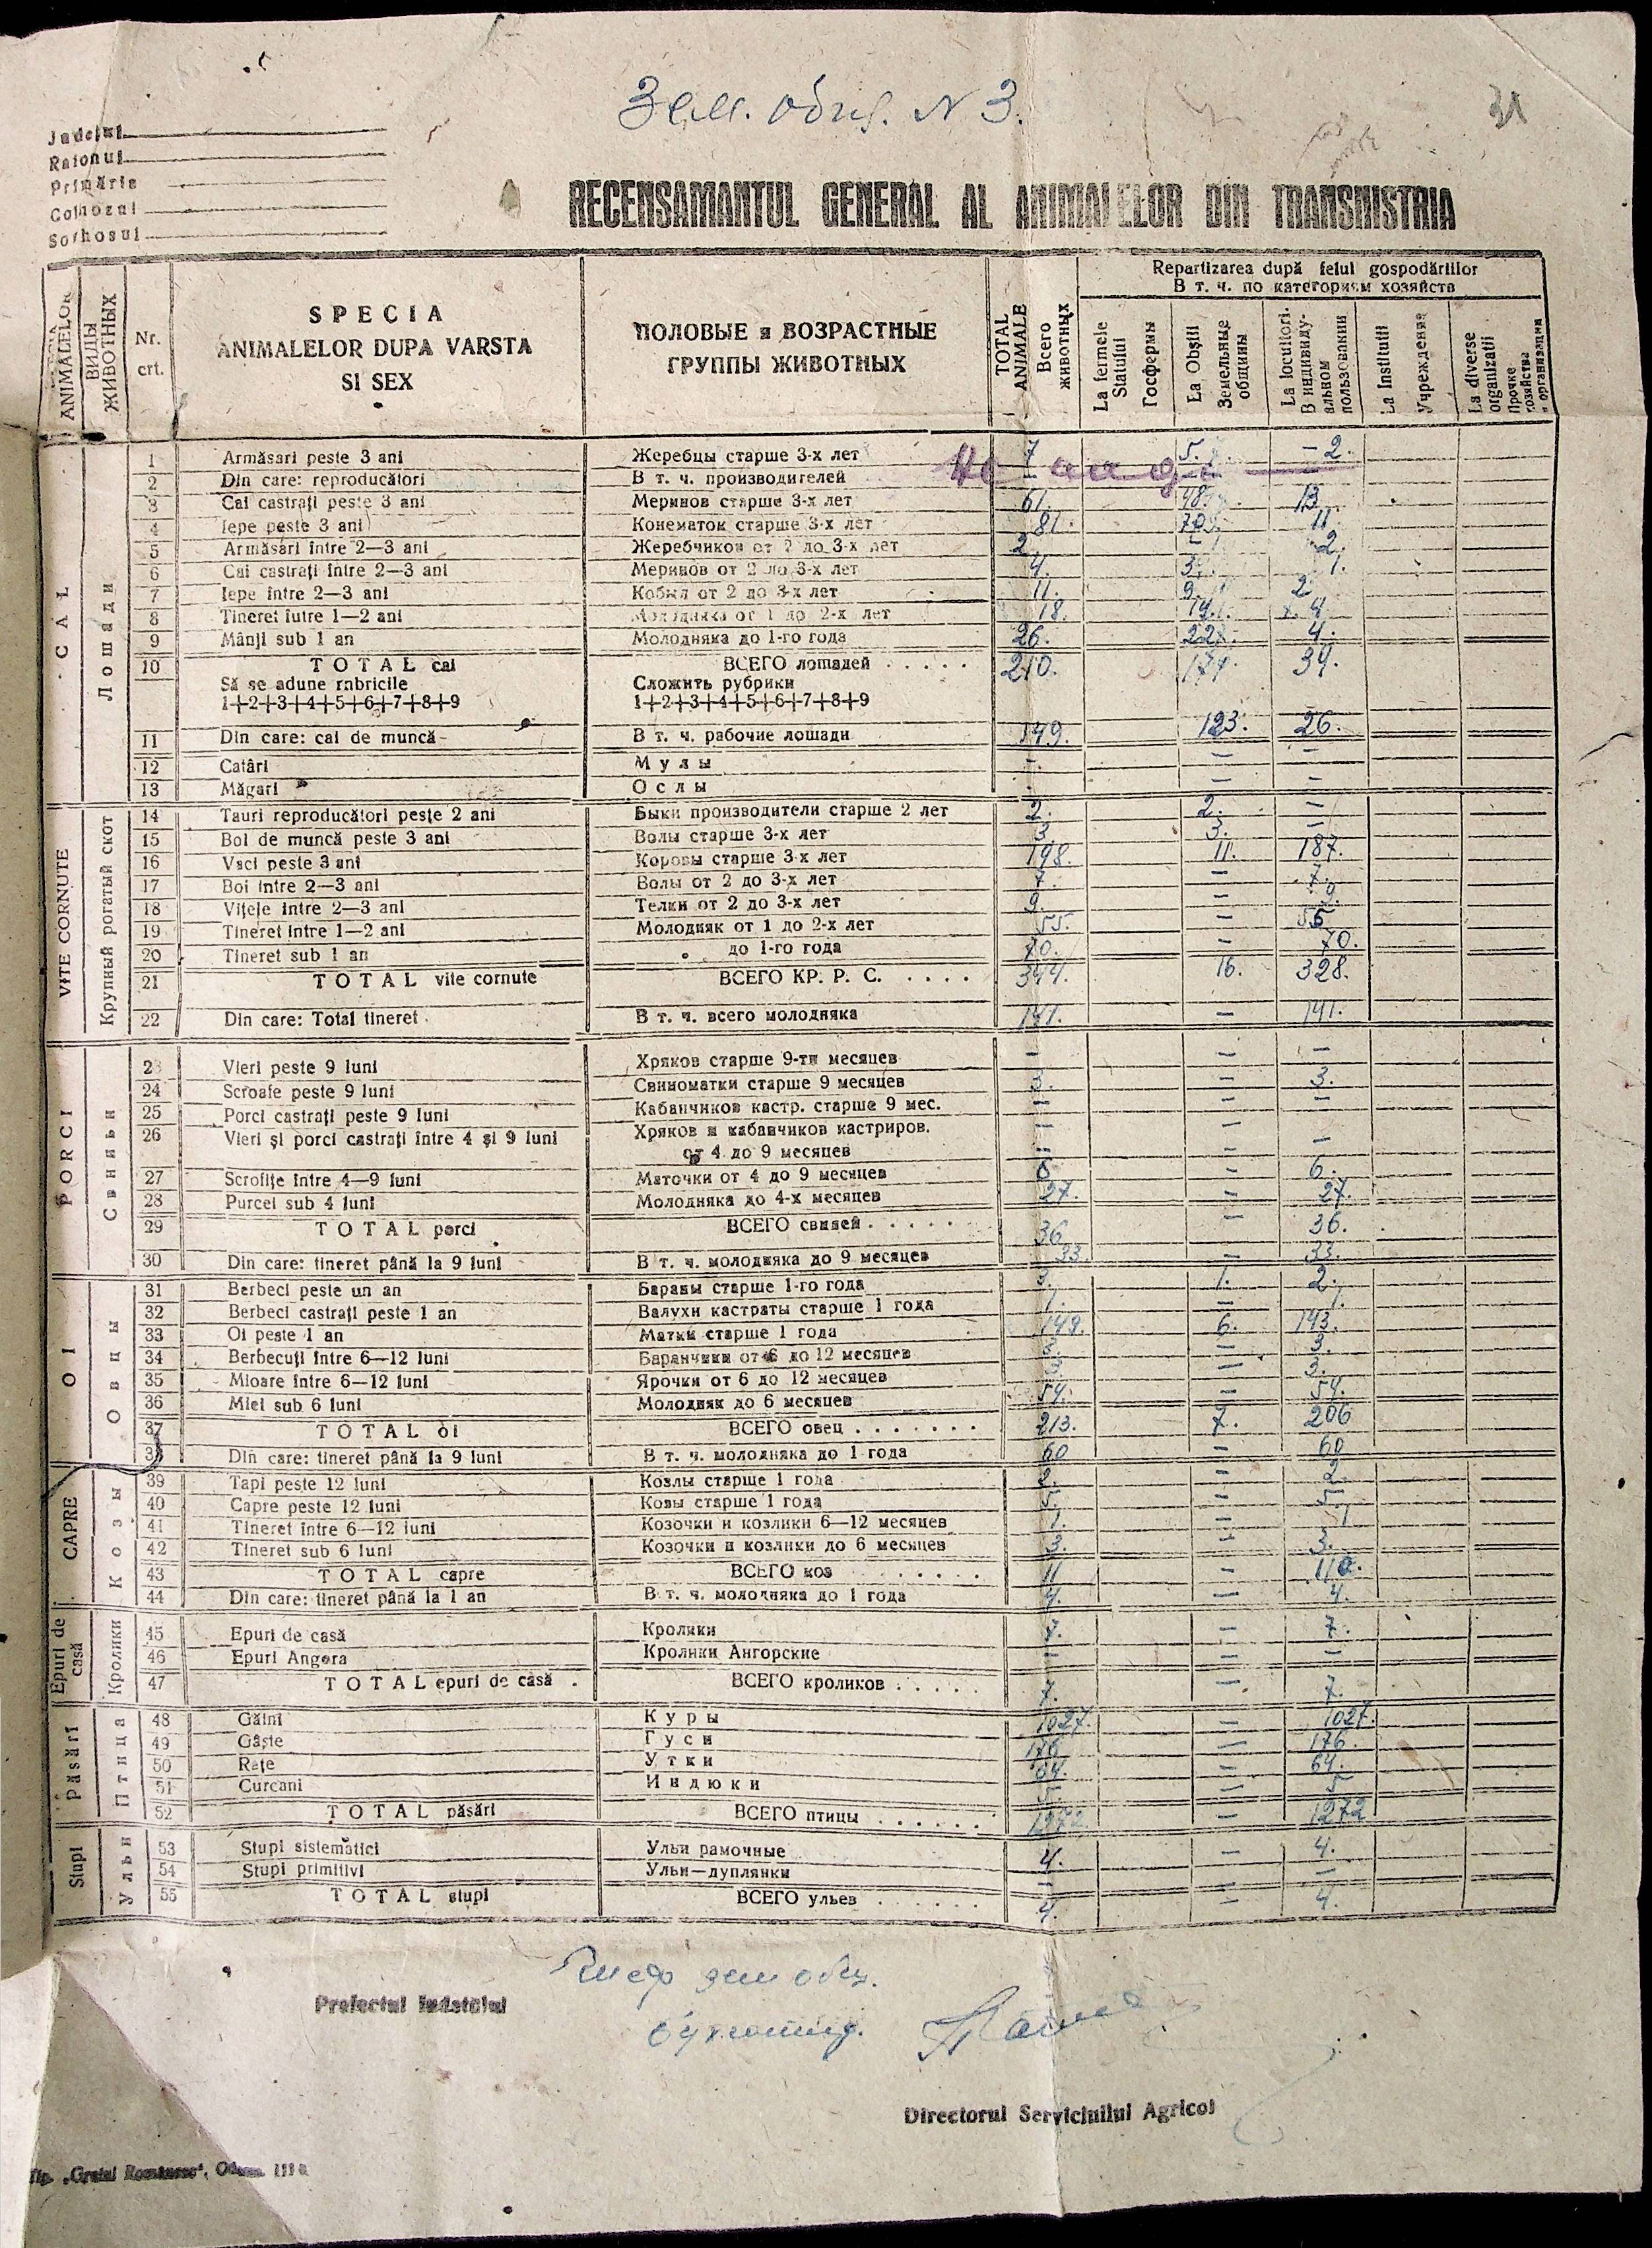 Зем. общ. N 3.
31
Judeţul
Raionul
Primăria
Colhozul
Sofhosul
RECENSAMANTUL GENERAL AL ANIMALELOR DIN TRANSNISTRIA
ANIMALELOR
ВИДЫ ЖИВОТНЫХ
Nr. crt.
SPECIA
ANIMALELOR DUPA VARSTA
SI SEX
ПОЛОВЫЕ и ВОЗРАСТНЫЕ
ГРУППЫ ЖИВОТНЫХ
TOTAL ANIMALE
Всего животных
Repartizarea după felul gospodăriilor
В т. ч. по категориям хозяйств
La fermele Statului
Госфермы
La Obştii
Земельные общины
La locuitori.
В индивиду-альном пользовании
La Institutii
Учреждения
La diverse organizatii
Прочие хозяйства и организации
CAL
Лошади
1 Armăsari peste 3 ani Жеребцы старше 3-х лет 7 5. – 2.
2 Din care: reproducători В т. ч. производителей –
3 Cai castraţi peste 3 ani Меринов старше 3-х лет 61. 48. 13.
4 Iepe peste 3 ani Конематок старше 3-х лет 81. 70. 11
5 Armăsari între 2—3 ani Жеребчиков от 2 до 3-х лет 2 – 2.
6 Cai castraţi între 2—3 ani Меринов от 2 до 3-х лет 4. 3. 1.
7 Iepe între 2—3 ani Кобыл от 2 до 3-х лет 11. 9. 2
8 Tineret între 1—2 ani Молодняка от 1 до 2-х лет 18. 14. 4.
9 Mânji sub 1 an Молодняка до 1-го года 26. 22. 4.
10 TOTAL cai ВСЕГО лошадей . . . . . 210. 39.
Să se adune rnbricile Сложить рубрики
1+2+3+4+5+6+7+8+9 1+2+3+4+5+6+7+8+9
11 Din care: cai de muncă В т. ч. рабочие лошади 149. 123. 26.
12 Catâri Мулы – – –
13 Măgari Ослы – –
VITE CORNUTE
Крупный рогатый скот
14 Tauri reproducători peşte 2 ani Быки производители старше 2 лет 2. 2. –
15 Boi de muncă peste 3 ani Волы старше 3-х лет 3 3. –
16 Vaci peste 3 ani Коровы старше 3-х лет 198. 11. 187.
17 Boi între 2—3 ani Волы от 2 до 3-х лет 7. – 7.
18 Viţele între 2—3 ani Телки от 2 до 3-х лет 9. – 9.
19 Tineret între 1—2 ani Молодняк от 1 до 2-х лет 55. – 55
20 Tineret sub 1 an до 1-го года 70. – 70.
21 TOTAL vite cornute ВСЕГО КР. Р. С. . . . . 344. 16. 328.
22 Din care: Total tineret В т. ч. всего молодняка 141. – 141.
PORCI
Свиньи
23 Vieri peste 9 luni Хряков старше 9-ти месяцев – – –
24 Scroafe peste 9 luni Свиноматки старше 9 месяцев 3. – 3.
25 Porci castraţi peste 9 luni Кабанчиков кастр. старше 9 мес. – – –
26 Vieri şi porci castraţi între 4 şi 9 luni Хряков и кабанчиков кастриров. – –
от 4 до 9 месяцев – –
27 Scrofiţe între 4—9 luni Маточки от 4 до 9 месяцев 6 – 6.
28 Purcei sub 4 luni Молодняка до 4-х месяцев 27. – 27.
29 TOTAL porci ВСЕГО свиней . . . . . 36 – 36.
30 Din care: tineret până la 9 luni В т. ч. молодняка до 9 месяцев 33. – 33.
OI
Овцы
31 Berbeci peste un an Бараны старше 1-го года 3. 1. 2.
32 Berbeci castraţi peste 1 an Валухи кастраты старше 1 года 1. – 1.
33 Oi peste 1 an Матки старше 1 года 149. 6. 143.
34 Berbecuţi între 6—12 luni Баранчики от 6 до 12 месяцев 3. – 3.
35 Mioare între 6—12 luni Ярочки от 6 до 12 месяцев 3 – 3.
36 Miei sub 6 luni Молодняк до 6 месяцев 54. – 54.
37 TOTAL oi ВСЕГО овец . . . . . . . 213. 7. 206
38 Din care: tineret până la 9 luni В т. ч. молодняка до 1 года 60 – 60
CAPRE
Козы
39 Tapi peste 12 luni Козлы старше 1 года 2. – 2.
40 Capre peste 12 luni Козы старше 1 года 5. – 5.
41 Tineret între 6—12 luni Козочки и козлики 6—12 месяцев 1. – 1
42 Tineret sub 6 luni Козочки и козлики до 6 месяцев 3. – 3.
43 TOTAL capre ВСЕГО коз . . . . . . . 11 –
44 Din care: tineret până la 1 an В т. ч. молодняка до 1 года 4. – 4.
Epuri de casă
Кролики
45 Epuri de casă Кролики 7. – 7.
46 Epuri Angora Кролики Ангорские – – –
47 TOTAL epuri de casă . ВСЕГО кроликов . . . . . 7. – 7.
Păsări
Птица
48 Găini Куры 1027. – 1027.
49 Gâşte Гуси 176 – 176.
50 Raţe Утки 64. – 64.
51 Curcani Индюки 5 – 5
52 TOTAL păsări ВСЕГО птицы . . . . . . 1272 – 1272
Stupi
Ульи
53 Stupi sistematici Ульи рамочные 4. – 4.
54 Stupi primitivi Ульи—дуплянки – – –
55 TOTAL stupi ВСЕГО ульев . . . . . 4. – 4.
зем общ.
Prefectul Iudetului
Directorul Serviciuilui Agricol
Tip. „Graiul Românesc“,